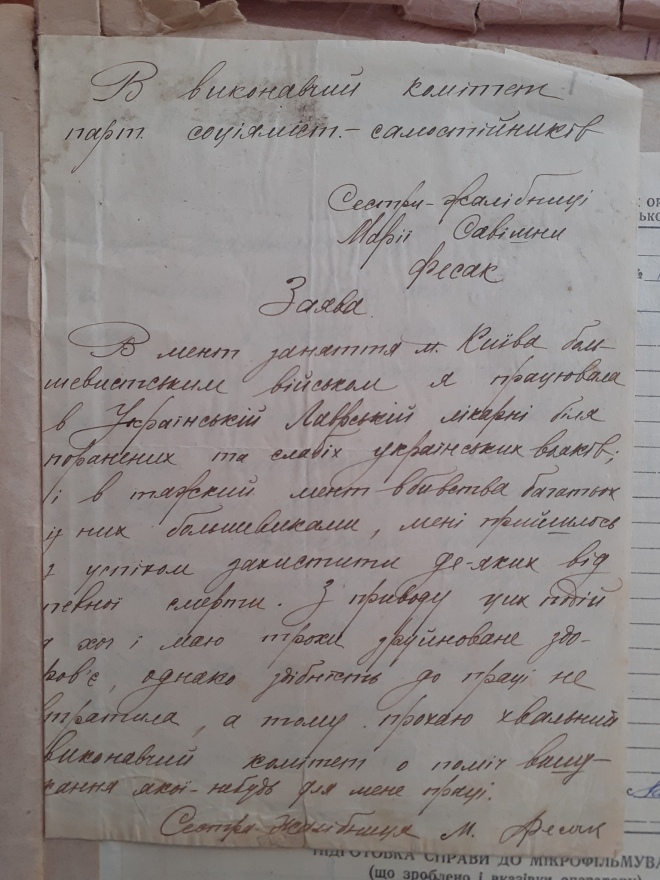 В виконавчий комітет
парт. соціяліст.-самостійників
Сестри-Жалібниці
Марії Савімни
Фесак
Заява.
В мент заняття м. Київа боль
шевистським військом я працювала
в Українській Лаврській лікарні біля
поранених та слабіх українських вояків;
і в тяжский мент вбивства багатьох
із них большевиками, мені прийшлось
з успіхом захистити де-яких від
певної смерти. З приводу цих подій
я хоч і маю трохи зруйноване здо-
ров'є, однако здібність до праці не
втратила, а тому прохаю хвальний
виконавчий комітет о поміч вашу-
кання якої-небудь для мене праці.
Сестра-Жалібниця М. Фесак
ПІДГОТОВКА СПРАВИ ДО МІКРОФІЛЬМУВА
(що зроблено і вказівки оператору)